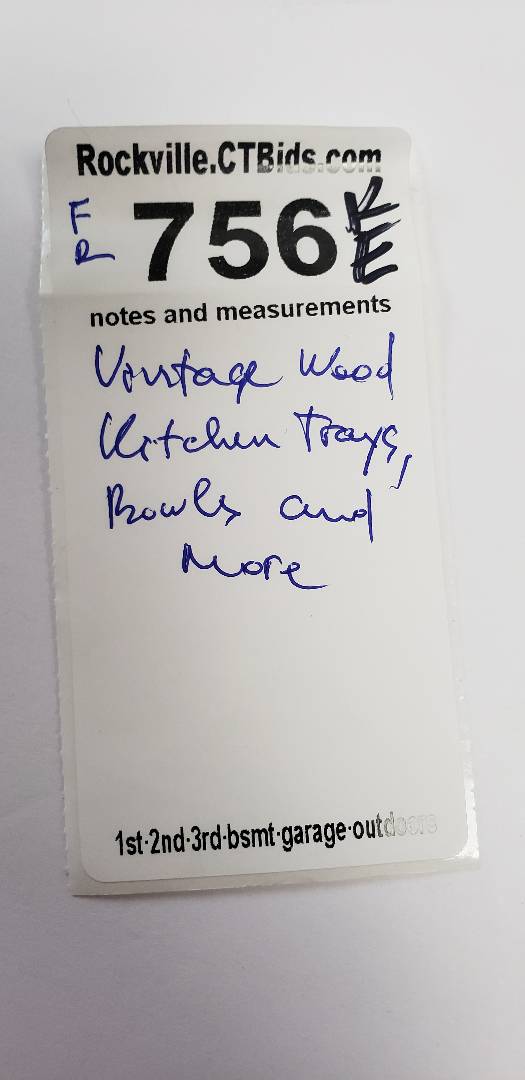 Rockville.CTBids.com
F
R
756
E
notes and measurements
Vintage Wood
Kitchen Trays,
Bowls and
More
1st·2nd·3rd·bsmt·garage·outdoors